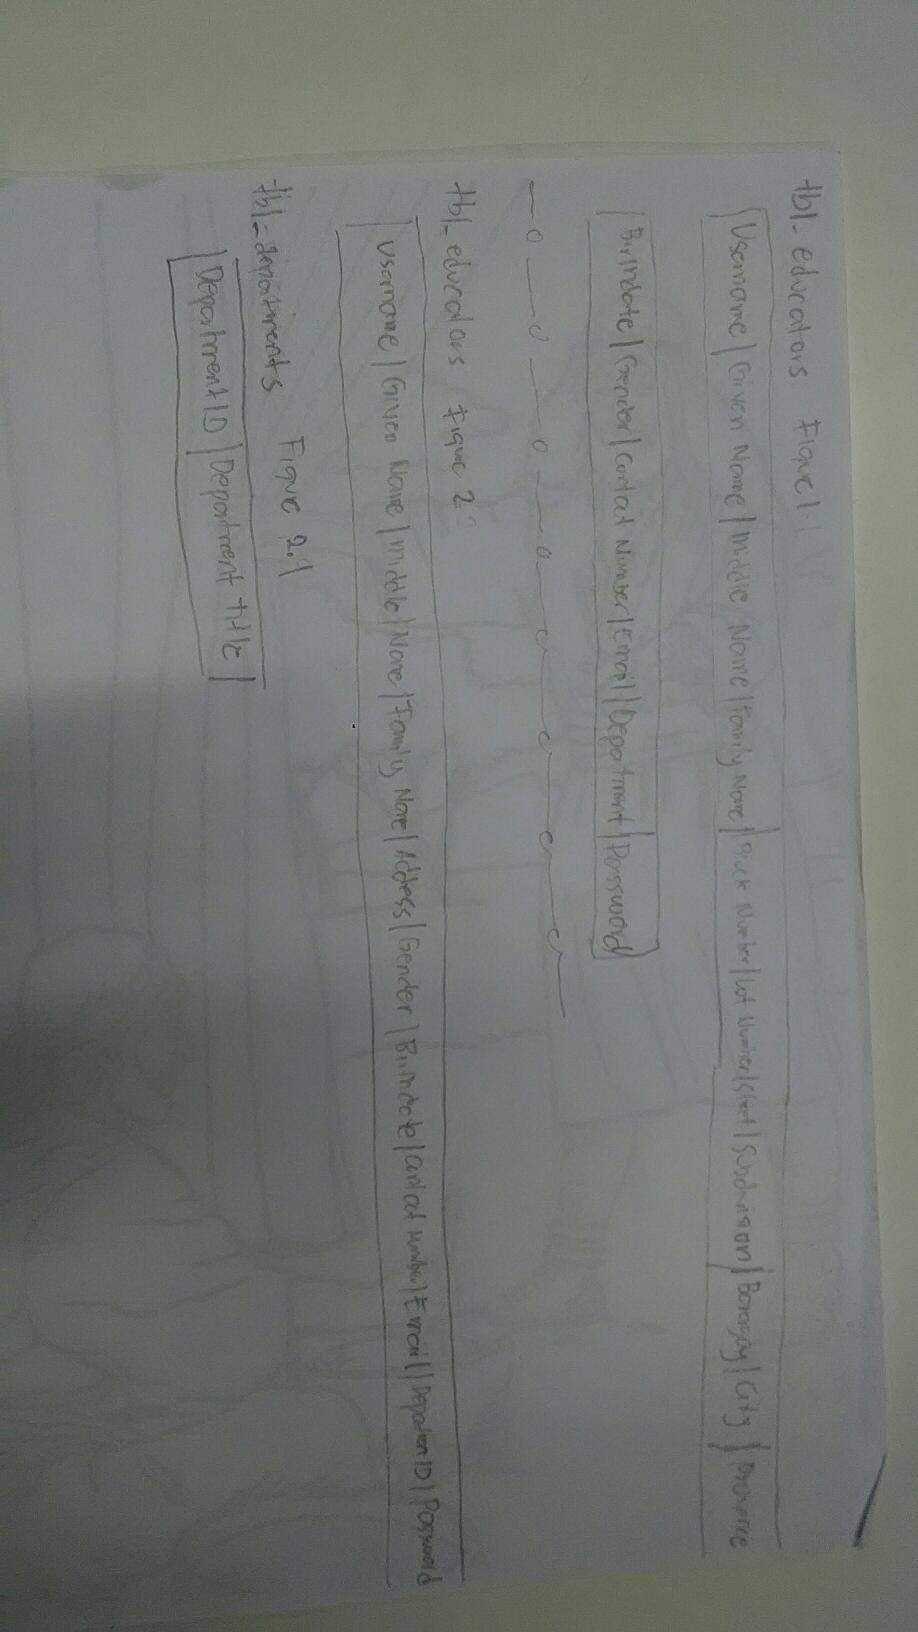 tbl_educators Figure 1.1
Username | Given Name | Middle Name | Family Name | Block Number | Lot Number | Street | Subdivision | Baragay | City | Province
Birthdate | Gender | Contact Number | Email | Department | Password
tbl_educators Figure 2
Username | Given Name | Middle | Name | Family Name | Address | Gender | Birthdate | Contact Number | Email | Departmen ID | Password
Figure 2.1
tbl_departments
Department ID | Department title |